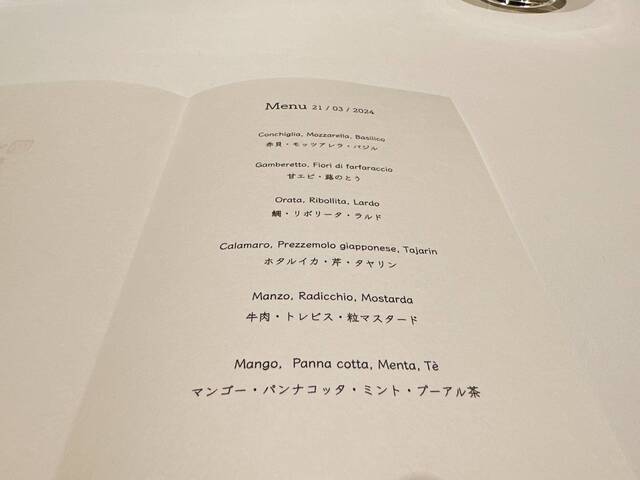 Menu 21 / 03 / 2024
Conchiglia, Mozzarella, Basilico
赤貝・モッツアレラ・バジル
Gamberetto, Fiori di farfaraccio
甘エビ・蕗のとう
Orata, Ribollita, Lardo
鯛・リボリータ・ラルド
Calamaro, Prezzemolo giapponese, Tajarin
ホタルイカ・芹・タヤリン
Manzo, Radicchio, Mostarda
牛肉・トレビス・粒マスタード
Mango, Panna cotta, Menta, Tè
マンゴー・パンナコッタ・ミント・プーアル茶